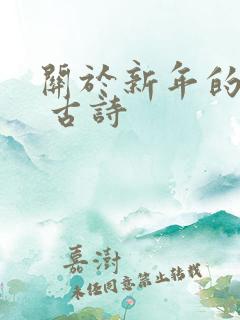 關於新年的
古詩
嘉澍
未任同意禁止轉載